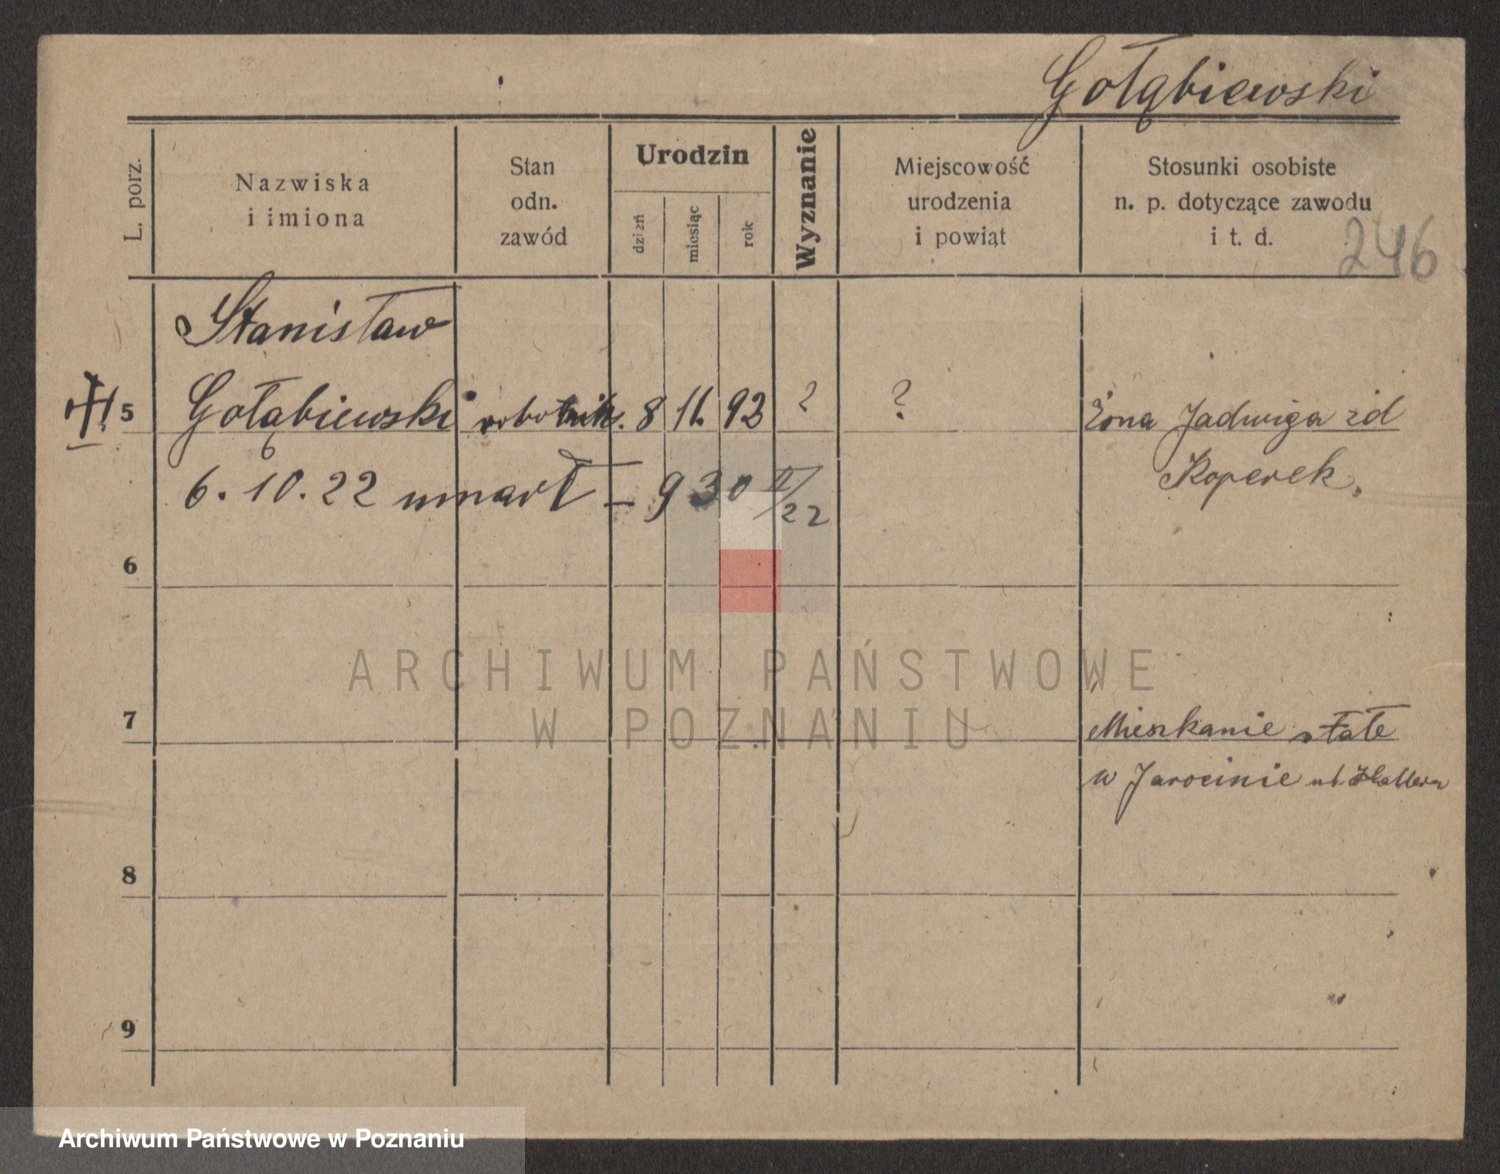 Gołąbiewski
L. porz.
Nazwiska
i imiona
Stan
odn.
zawód
Urodzin
dzień
miesiąc
rok
Wyznanie
Miejscowość
urodzenia
i powiąt
Stosunki osobiste
n. p. dotyczące zawodu
i t. d.
246
Stanisław
5 Gołąbiewski robotnik. 8 11. 93 ? ? Żona Jadwiga zd
Koperek.
6. 10. 22 umarł – 930 II/22
6
7
Mieszkanie stałe
w Jarocinie ul. Hallera
8
9
ARCHIWUM PAŃSTWOWE
W POZNANIU
Archiwum Państwowe w Poznaniu